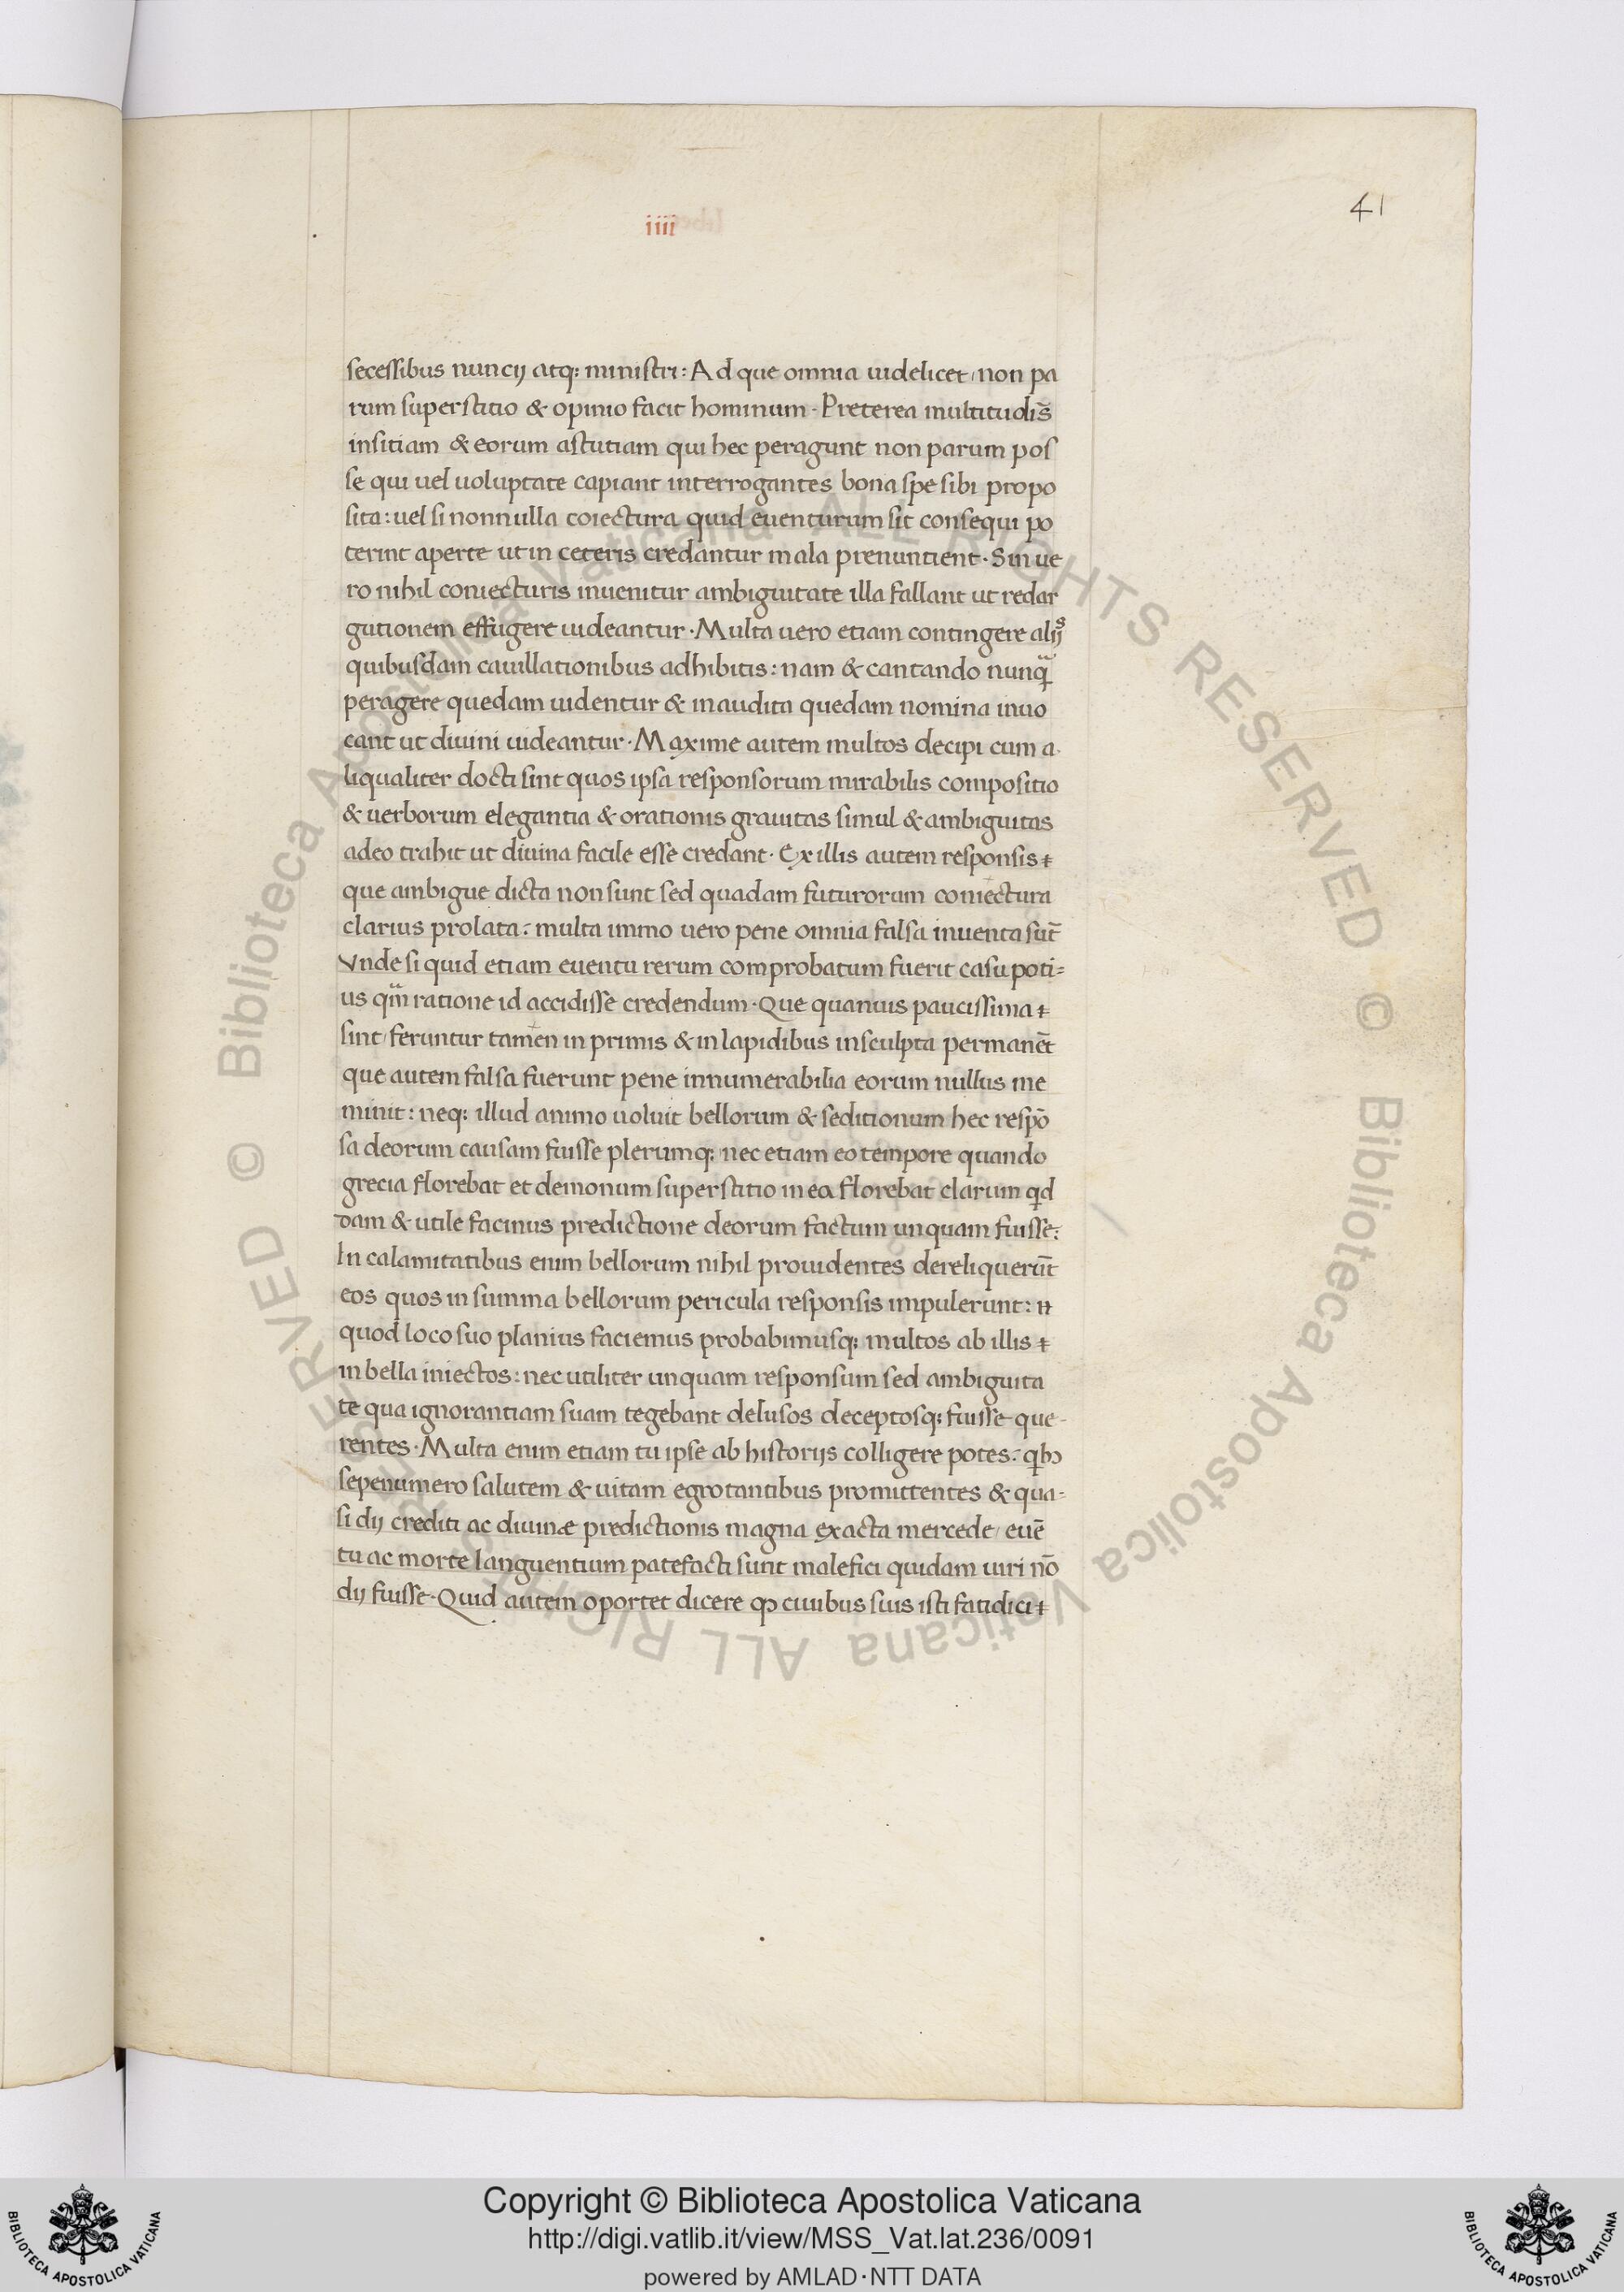 41
iiii
secessibus nuncij atq; ministri: Ad que omnia uidelicet, non pa
rum superstitio & opinio facit hominum. Preterea multitudis̄
insitiam & eorum astutiam qui hec peragunt non parum pos
se qui uel uoluptate capiant interrogantes bona spe sibi propo
sita: uel si nonnulla coiectura quid euenturum sit consequi po
terint aperte ut in ceteris credantur mala prenuntient. Sin ue
ro nihil coniecturis inuenitur ambiguitate illa fallant ut redar
gutionem effugere uideantur. Multa uero etiam contingere alijs
quibusdam cauillationibus adhibitis: nam & cantando nunq̄
peragere quedam uidentur & inaudita quedam nomina inuo
cant ut diuini uideantur. Maxime autem multos decipi cum a
liqualiter docti sint quos ipsa responsorum mirabilis compositio
& uerborum elegantia & orationis grauitas simul & ambiguitas
adeo trahit ut diuina facile esse credant. Ex illis autem responsis
que ambigue dicta non sunt sed quadam futurorum coniectura
clarius prolata: multa immo uero pene omnia falsa inuenta sūt
Vnde si quid etiam euentu rerum comprobatum fuerit casu poti=
us qm̄ ratione id accidisse credendum. Que quanuis paucissima
sint, feruntur tamen in primis & in lapidibus insculpta permanēt
que autem falsa fuerunt pene innumerabilia eorum nullus me
minit: neq; illud animo uoluit bellorum & seditionum hec respō
sa deorum causam fuisse plerumq; nec etiam eo tempore quando
grecia florebat et demonum superstitio in ea florebat clarum qd
dam & utile facinus predictione deorum factum unquam fuisse:
In calamitatibus enim bellorum nihil prouidentes dereliquerūt
eos quos in summa bellorum pericula responsis impulerunt:
quod loco suo planius faciemus probabimusq; multos ab illis
in bella iniectos: nec utiliter unquam responsum sed ambiguita
te qua ignorantiam suam tegebant delusos deceptosq; fuisse que-
rentes. Multa enim etiam tu ipse ab historijs colligere potes:
sepenumero salutem & uitam egrotantibus promittentes & qua=
si dij crediti ac diuinæ predictionis magna exacta mercede, euē
tu ac morte languentium patefacti sunt malefici quidam uiri nō
dij fuisse. Quid autem oportet dicere ꝙ ciuibus suis isti fatidici
Copyright © Biblioteca Apostolica Vaticana
http://digi.vatlib.it/view/MSS_Vat.lat.236/0091
powered by AMLAD·NTT DATA
BIBLIOTECA APOSTOLICA VATICANA
BIBLIOTECA APOSTOLICA VATICANA
© Biblioteca Apostolica Vaticana ALL RIGHTS RESERVED © Biblioteca Apostolica Vaticana ALL RIGHTS RESERVED